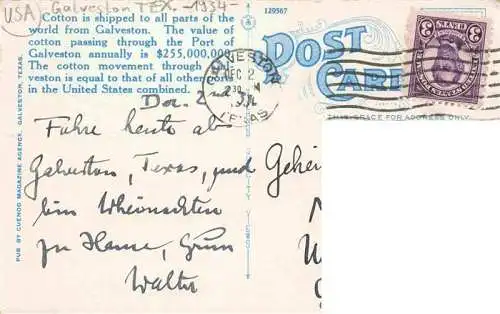 USA Galveston TEX. -1934-
Cotton is shipped to all parts of the
world from Galveston. The value of
cotton passing through the Port of
Galveston annually is $255,000,000
The cotton movement through Gal-
veston is equal to that of all other
in the United States combined.
PUB BY CUENOD MAGAZINE AGENCY, GALVESTON, TEXAS.
129567
POST
CARD
GALVESTON
DEC 2
230
TEXAS
3 CENTS 3
THIS SPACE FOR ADDRESS ONLY
Dec. 2nd 34
Fahre heute ab
Galveston, Texas, und
bin Weihnachten
zu Hause, Gruss
Walter
Gehei